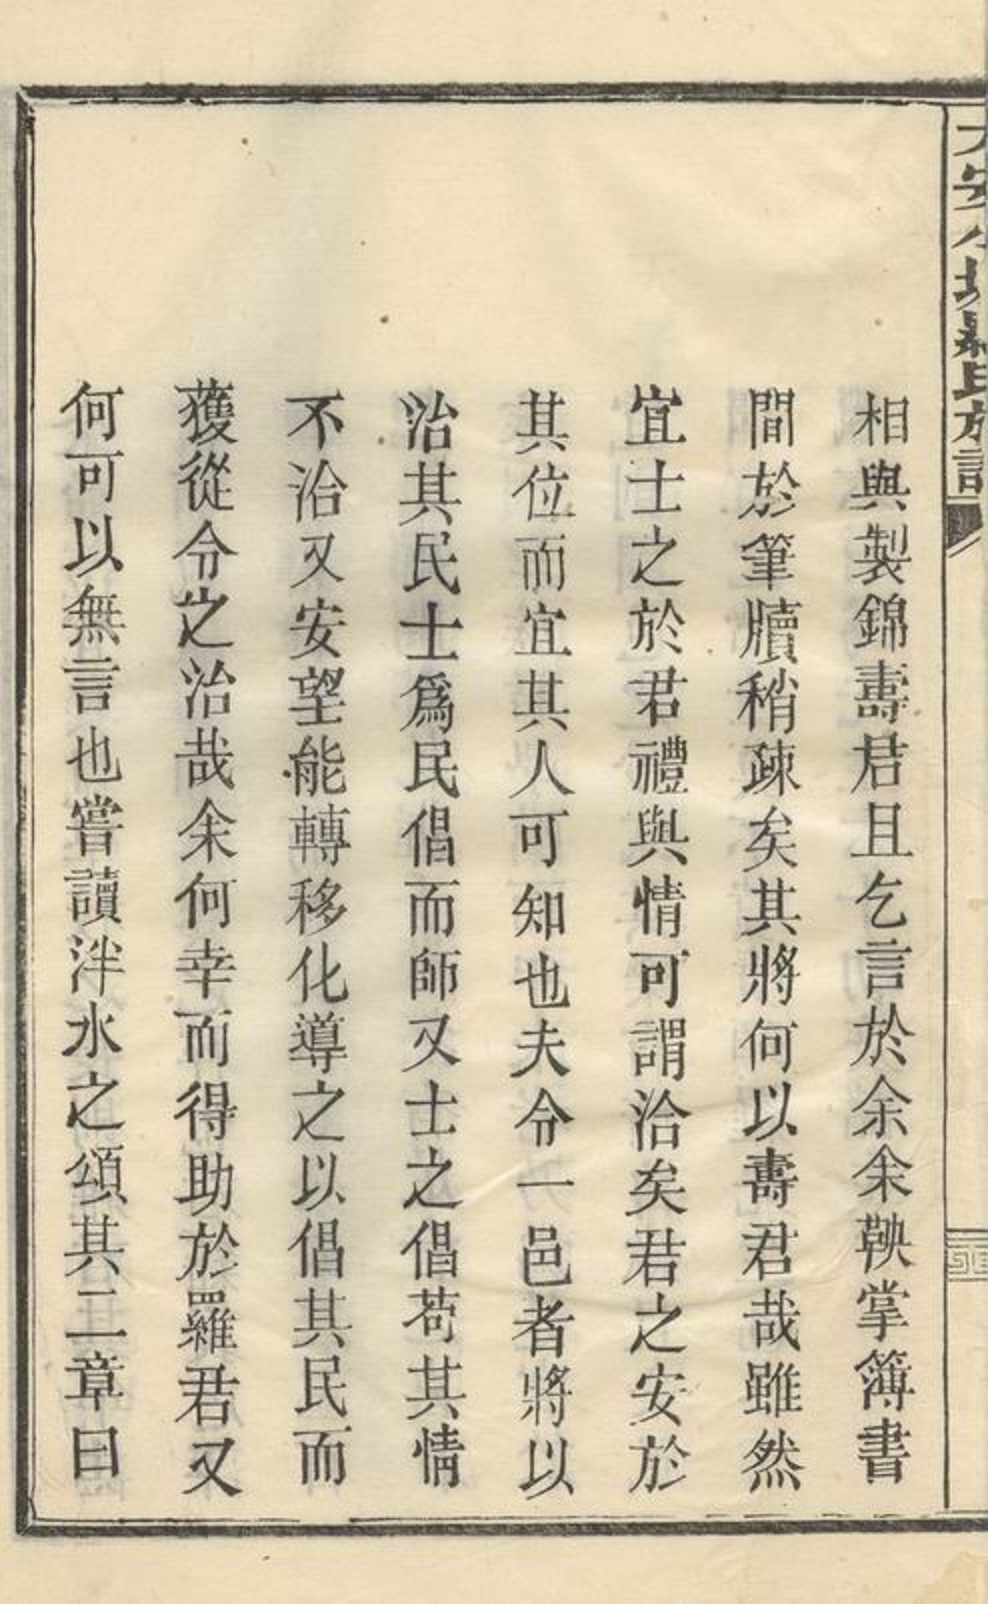 相與製錦壽君且乞言於余余鞅掌簿書
間於筆牘稍疎矣其將何以壽君哉雖然
宜士之於君禮與情可謂洽矣君之安於
其位而宜其人可知也夫令一邑者將以
治其民士爲民倡而師又士之倡苟其情
不洽又安望能轉移化導之以倡其民而
獲從令之治哉余何幸而得助於羅君又
何可以無言也嘗讀泮水之頌其二章曰